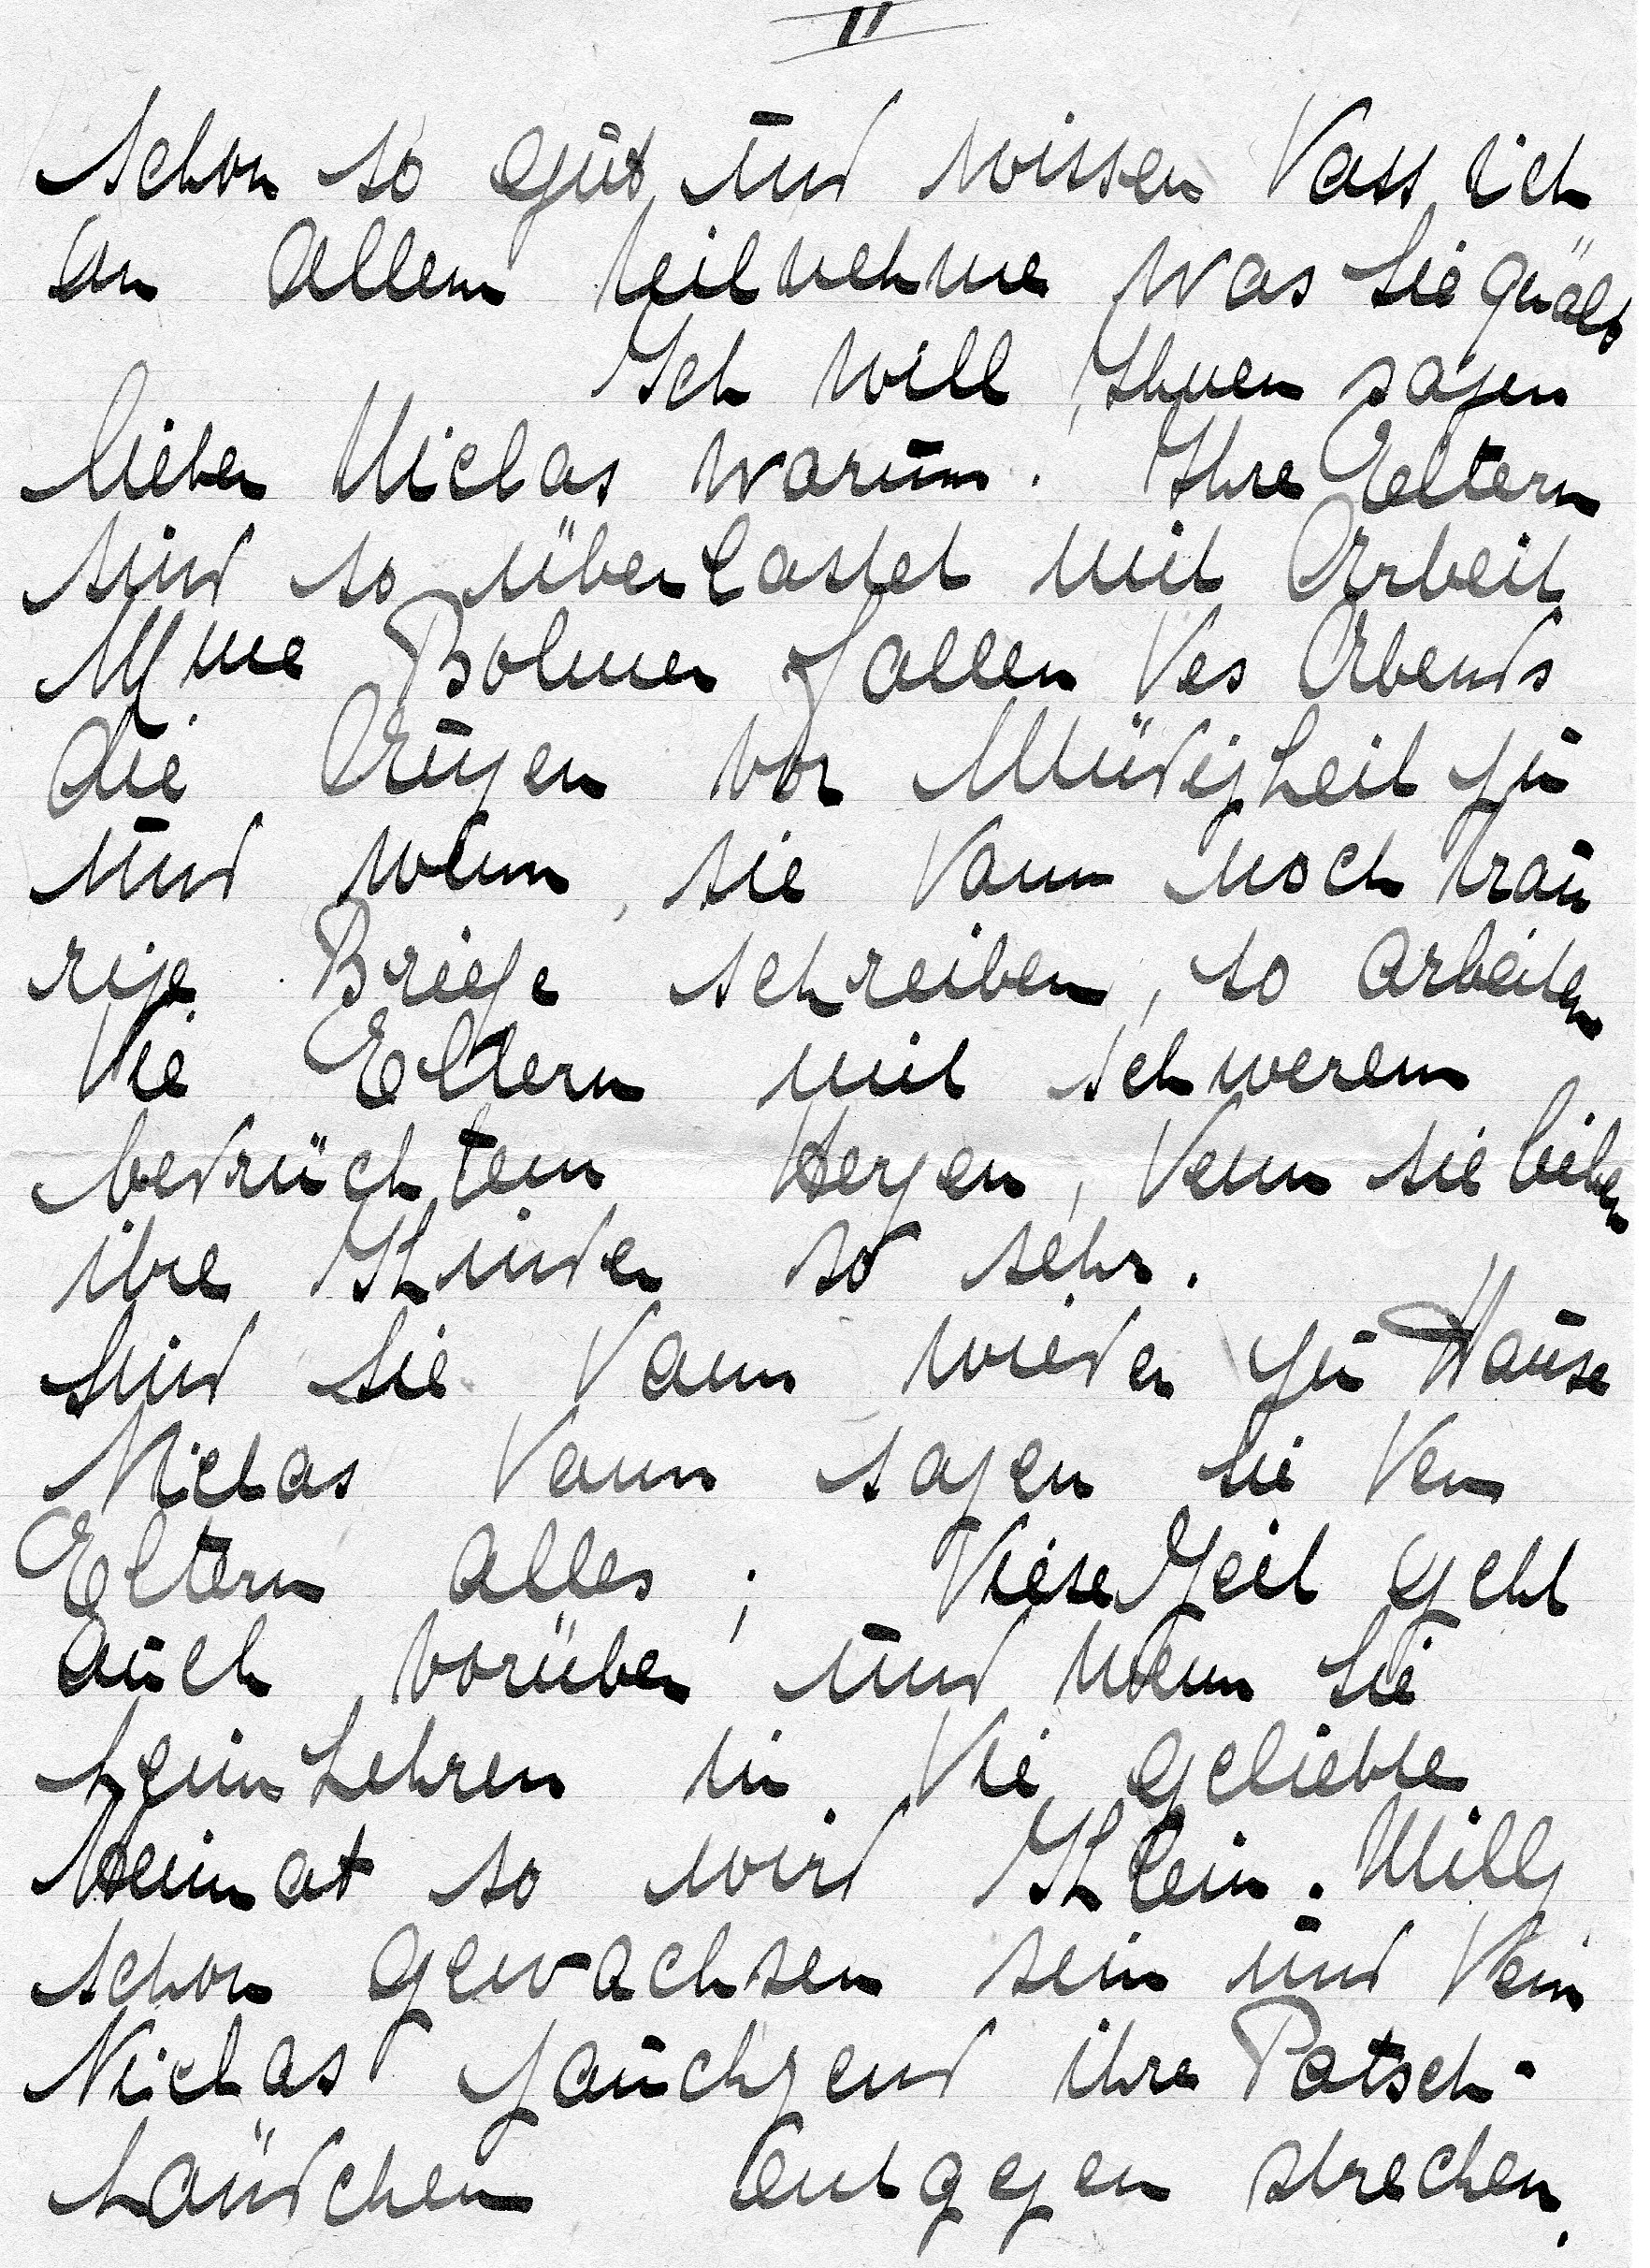 II
schon so gut und wissen dass ich
an allem teilnehme was Sie quält
Ich will Ihnen sagen
lieber Niclas warum. Ihre Eltern
sind so überlastet mit Arbeit
Mme Bolmer fallen des Abends
die Augen vor Müdigkeit zu
und wenn sie dann noch trau
rige Briefe schreiben, so arbeiten
die Eltern mit schwerem
bedrücktem Herzen, denn sie lieben
ihre Kinder so sehr.
Sind Sie dann wieder zu Hause
Niclas dann sagen Sie den
Eltern alles; diese Zeit geht
auch vorüber und wenn Sie
heimkehren in die geliebte
Heimat so wird Klein. Milly
schon gewachsen sein und dem
Niclas jauchzend ihre Patsch-
händchen entgegen strecken.